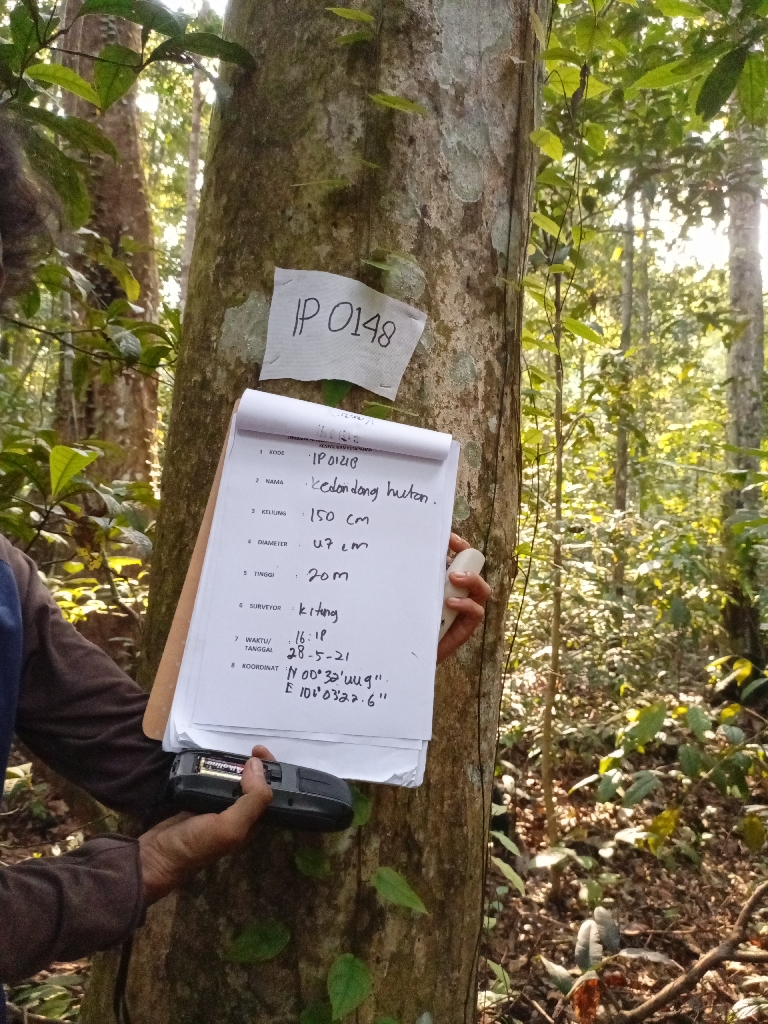 IP 0148
1 KODE : IP0148
2 NAMA : Kedondong hutan.
3 KELILING : 150 cm
4 DIAMETER : 47 cm
5 TINGGI : 20 m
6 SURVEYOR : Kitung
7 WAKTU/ : 16:18
TANGGAL 28-5-21
8 KOORDINAT : N 00°32'44.9".
E 101°03'22.6"
Alkaline